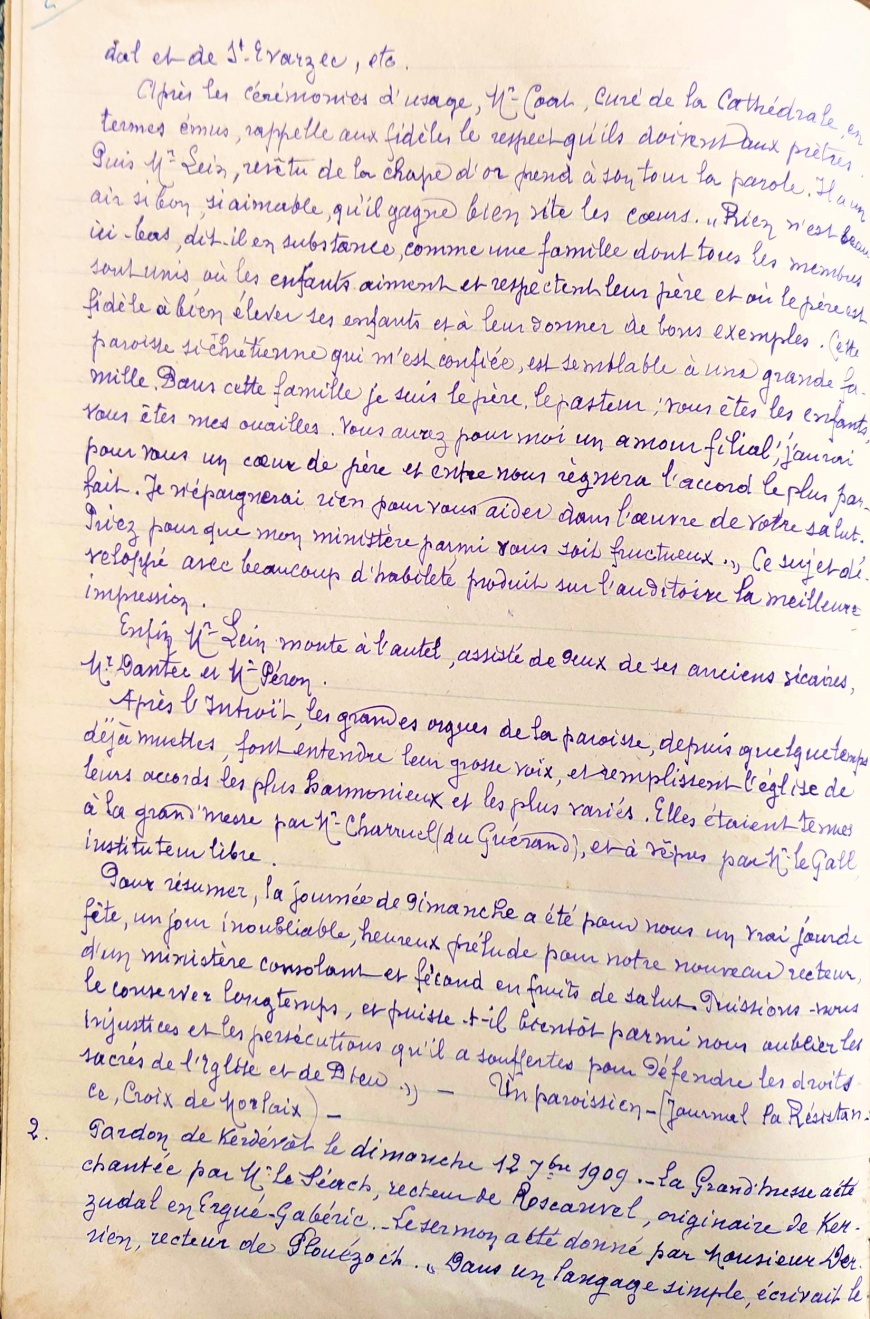 dal et de St-Evarzec, etc.
Après les cérémonies d'usage, Mr Coat, Curé de la Cathédrale, en
termes émus, rappelle aux fidèles le respect qu'ils doivent aux prêtres.
Puis Mr Lein, revêtu de la chape d'or prend à son tour la parole. Il a un
air si bon, si aimable, qu'il gagne bien vite les cœurs. "Rien n'est beau
ici-bas, dit-il en substance, comme une famille dont tous les membres
sont unis où les enfants aiment et respectent leur père et où le père est
fidèle à bien élever ses enfants et à leur donner de bons exemples. Cette
paroisse si chrétienne qui m'est confiée, est semblable à une grande fa-
mille. Dans cette famille je suis le père, le pasteur ; vous êtes les enfants,
vous êtes mes ouailles. Vous aurez pour moi un amour filial ; j'aurai
pour vous un cœur de père et entre nous règnera l'accord le plus par-
fait. Je n'épargnerai rien pour vous aider dans l'œuvre de votre salut.
Priez pour que mon ministère parmi vous soit fructueux." Ce sujet dé-
veloppé avec beaucoup d'habileté produit sur l'auditoire la meilleure
impression.
Enfin Mr Lein monte à l'autel, assisté de deux de ses anciens vicaires,
Mr Dantec et Mr Péron.
Après l'Introït, les grandes orgues de la paroisse, depuis quelque temps
déjà muettes, font entendre leur grosse voix, et remplissent l'église de
leurs accords les plus harmonieux et les plus variés. Elles étaient tenues
à la grand'messe par Mr Charruel (du Guérand), et à vêpres par Mr le Gall,
instituteur libre.
Pour résumer, la journée de dimanche a été pour nous un vrai jour de
fête, un jour inoubliable, heureux prélude pour notre nouveau recteur,
d'un ministère consolant et fécond en fruits de salut. Puissions-nous
le conserver longtemps, et puisse-t-il bientôt parmi nous oublier les
injustices et les persécutions qu'il a souffertes pour défendre les droits
sacrés de l'Eglise et de Dieu." — Un paroissien - (Journal la Résistan-
ce, Croix de Morlaix) -
2. Pardon de Kerdévot le dimanche 12 7bre 1909. - La Grand'messe a été
chantée par Mr le Séach, recteur de Roscanvel, originaire de Ker-
zudal en Ergué-Gabéric. - Le sermon a été donné par Monsieur Der-
rien, recteur de Plouézoch. "Dans un langage simple, écrivait le